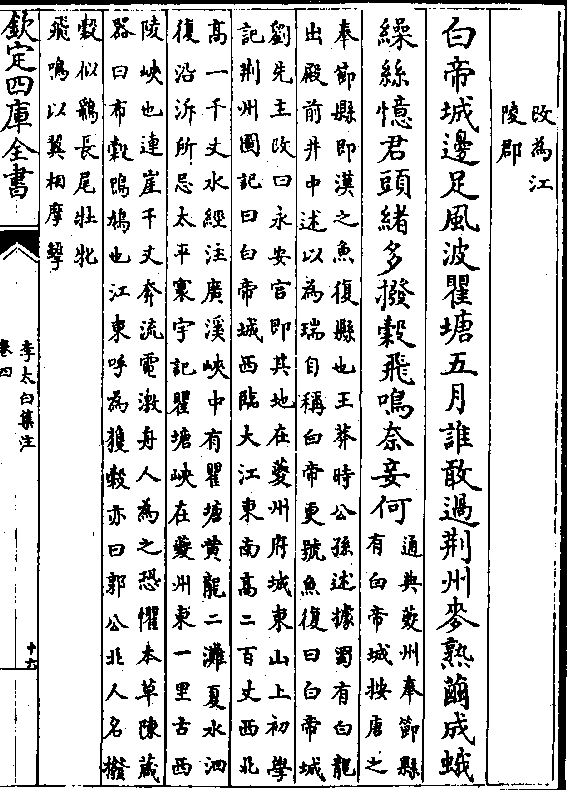 改為江
陵郡
白帝城邊足風波瞿塘五月誰敢過荆州麥熟繭成蛾
繰絲憶君頭緒多撥穀飛鳴奈妾何
通典夔州奉節縣
有白帝城按唐之
奉節縣即漢之魚復縣也王莽時公孫述據蜀有白龍
出殿前井中述以為瑞自稱白帝更號魚復曰白帝城
劉先主改曰永安宫即其地在夔州府城東山上初學
記荆州圖記曰白帝城西臨大江東南高二百丈西北
高一千丈水經注廣溪峽中有瞿塘黄龍二灘夏水洄
復沿泝所忌太平寰宇記瞿塘峽在夔州東一里古西
陵峽也連崖千丈奔流電激舟人為之恐懼本草陳藏
器曰布穀鳲鳩也江東呼為獲穀亦曰郭公北人名撥
穀似鷂長尾牡牝
飛鳴以翼相摩擊
欽定四庫全書
李太白集注
卷四
十六